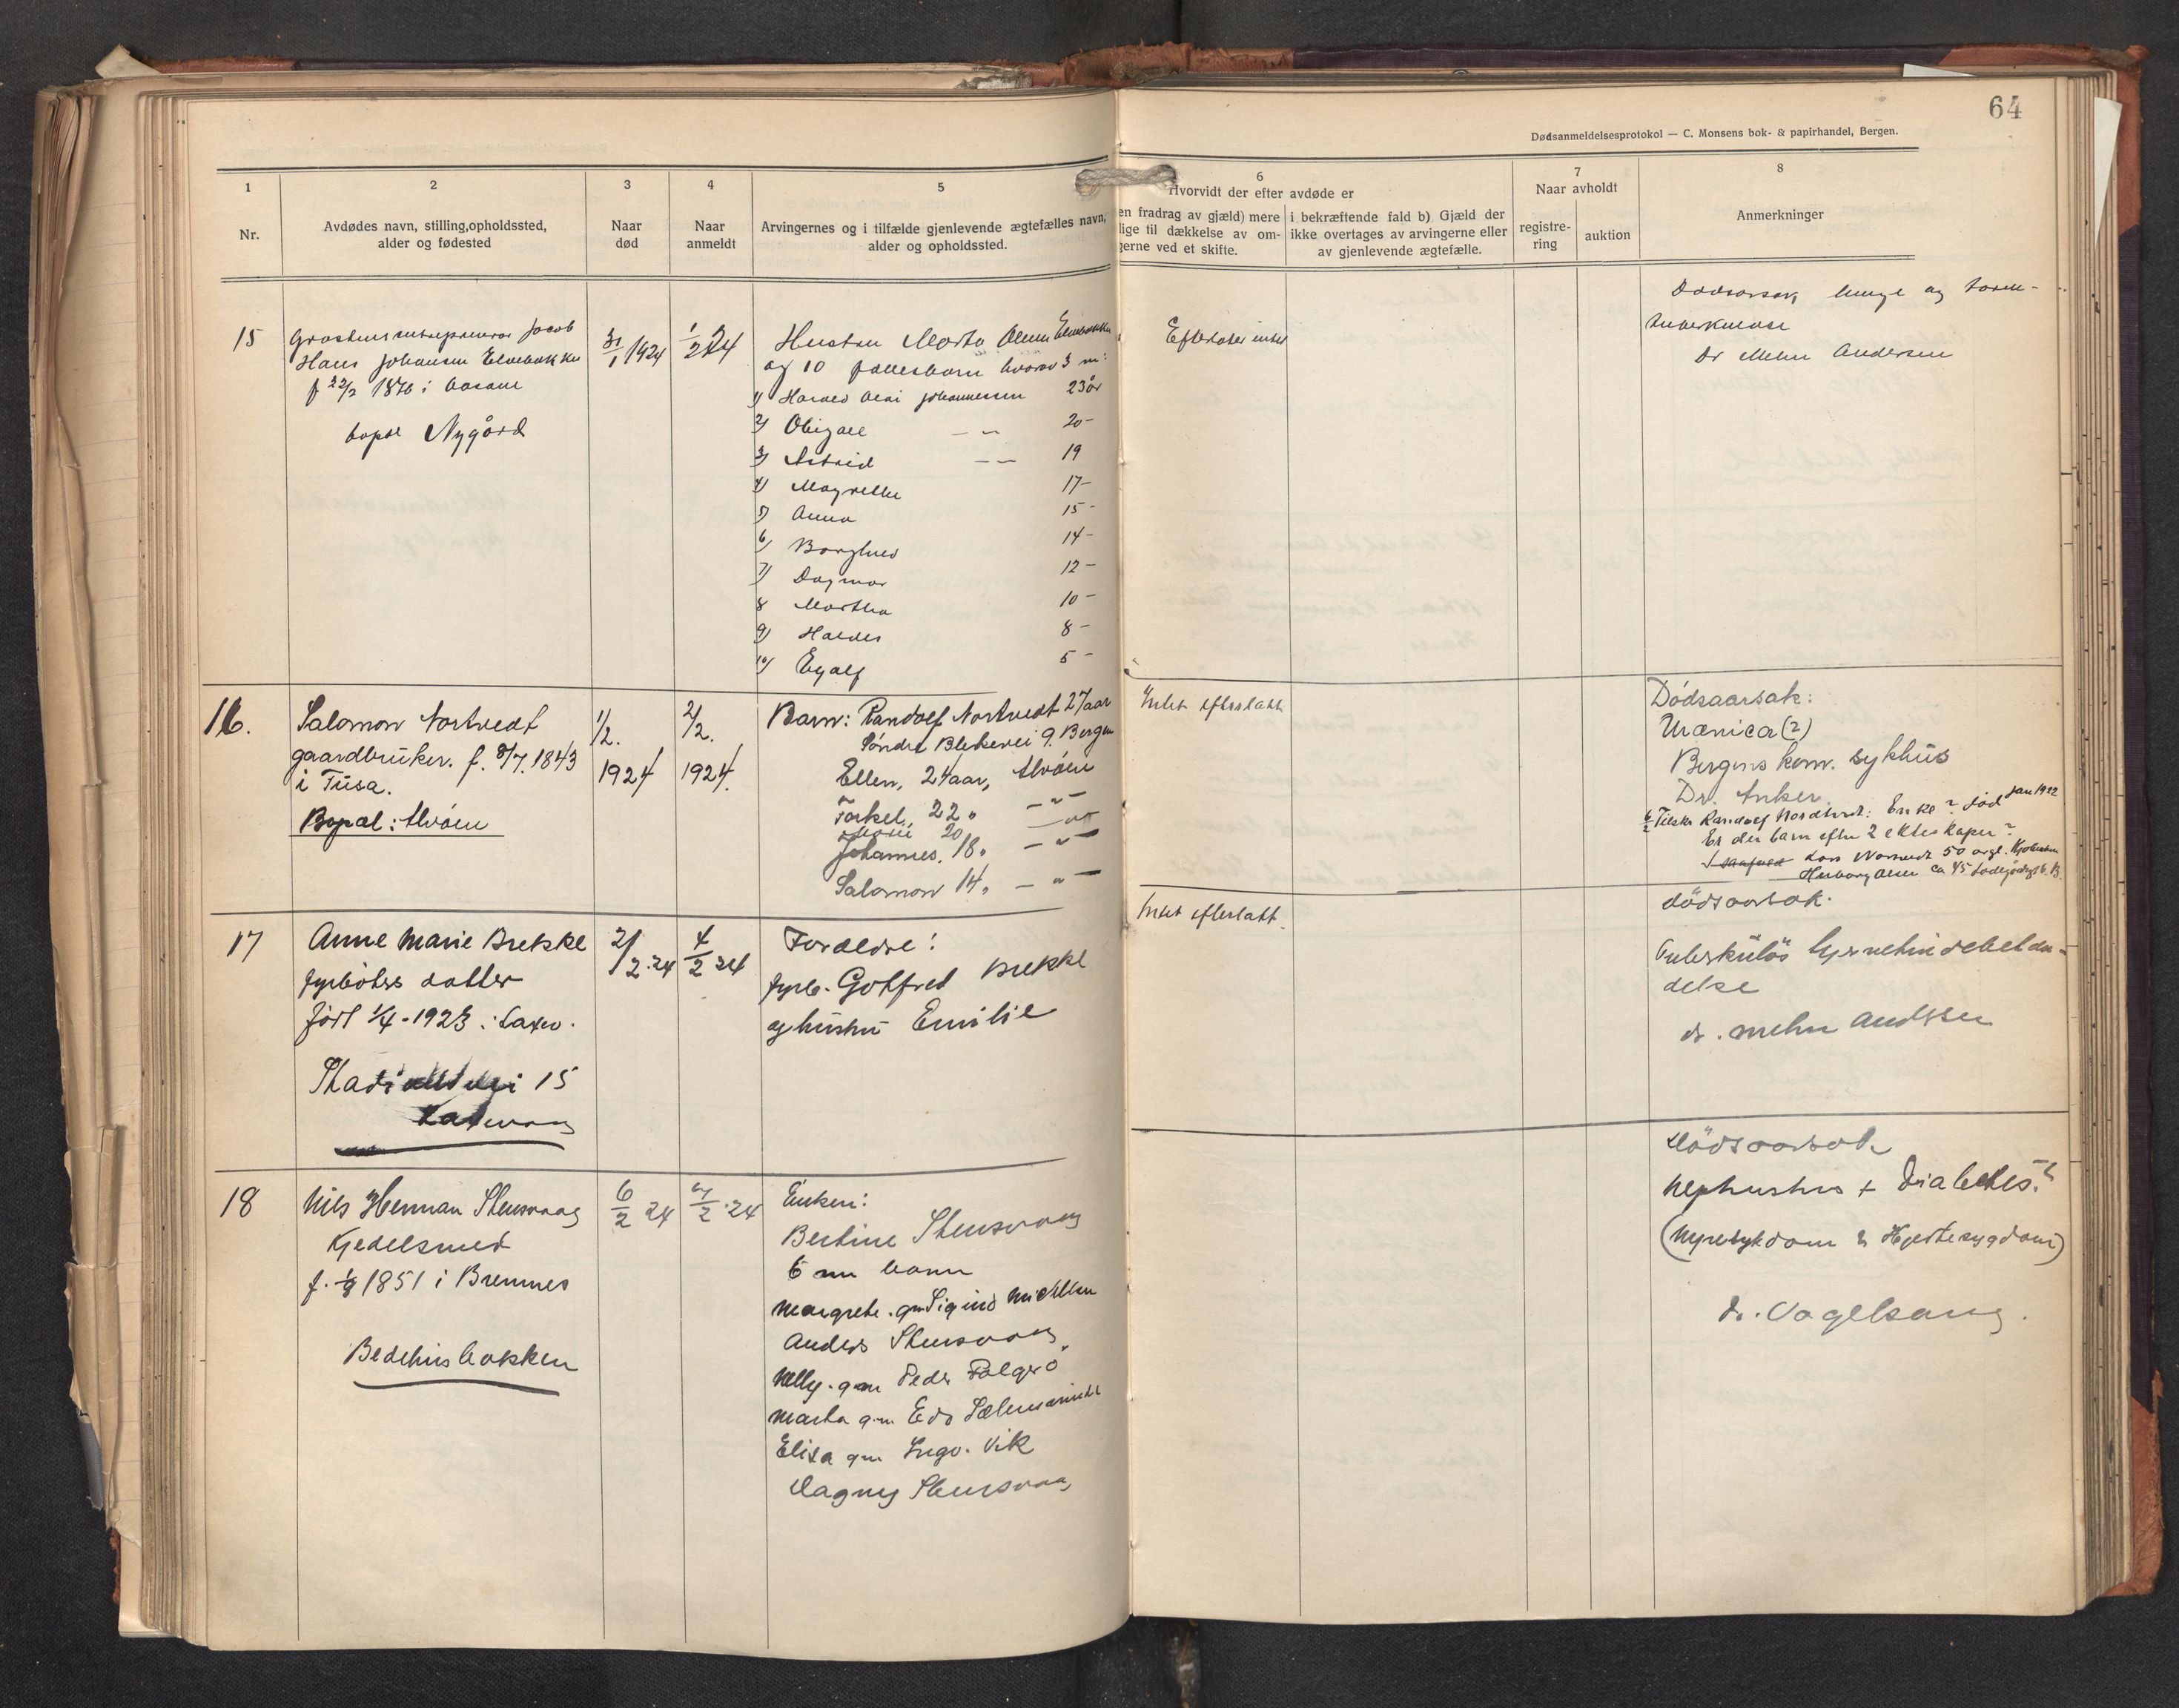 64
Dødsanmeldelsesprotokol — C. Monsens bok- & papirhandel, Bergen.
1
2
3
4
5
6
7
8
Nr.
Avdødes navn, stilling, opholdssted,
alder og fødested
Naar
død
Naar
anmeldt
Arvingernes og i tilfælde gjenlevende ægtefælles navn,
alder og opholdssted.
Hvorvidt der efter avdøde er
en fradrag av gjæld) mere
lige til dækkelse av om-
gerne ved et skifte.
i bekræftende fald b) Gjæld der
ikke overtages av arvingerne eller
av gjenlevende ægtefælle.
Naar avholdt
registre-
ring
auktion
Anmerkninger
15
Jacob
Hans Johansen
f 22/2 1876 i Aasane
bopæl Nygård
31/1 1924
1/2 24
Hustru Marta Olense
og 10 fællesbarn hvorav 3 m:
1) Harald Johannessen 23 år
2) Abigael — " — 20 -
3) Astrid — " — 19
4) Magnelle 17 -
5) Anna 15 -
6) Borghild 14 -
7) Dagmar 12 -
8 Martha 10 -
9) Haldis 8 -
10) Eyolf 5 -
Efterlater intet
Dødsorsak lunge og tarm-
tuberkulose
Dr Mehn Andersen
16.
Salomon Nortvedt
gaardbruker. f. 8/7. 1843
i Fusa.
Bopæl: Alvøen
1/2.
1924
2/2.
1924.
Barn: Randolf Nortvedt 27 aar
Søndre Blekevei 9. Bergen
Ellen, 24 aar, Alvøen
Torkel, 22 " — " —
20 — " —
Johannes, 18 " — " —
Salomon 14 " — " —
Intet efterlatt
Dødsaarsak:
Urænica (?)
Bergens kom. sykhus
Dr. Anker
Randolf Nordtvedt: Enke? død Jan 1922
Er der barn efter 2 ekteskaper?
Lars 50 årgl.
Herborg Olsen ca 45
17
Anne Marie Brekke
fyrbøters datter
født 1/4 - 1923 i Laxev.
15
Laxevaag
2/2.24
4/2 24
Foreldre:
fyrb. Gotfred Brekke
og hustru Emilie
Intet efterlatt.
dødsaarsak.
Tuberkuløs hjernehindebetæn-
delse
dr. Mehn Andersen
18
Nils Herman Stensvaag
Kjedelsmed
f. 1/9 1851 i Bremnes
Bedehusbakken
6/2 24
7/2 24
Enken:
Bertine Stensvaag
6 barn
Margrete. gm Sigurd Mickelsen
Anders Stensvaag
Nelly. gm Peder Folgerø
Marta g.m. Edv
Elisa gm Ingv. Vik
Dagny Stensvaag
Dødsaarsak
Nephritis + Diabetes?
(Nyresykdom & Hjertesygdom)
dr. Vogelsang.